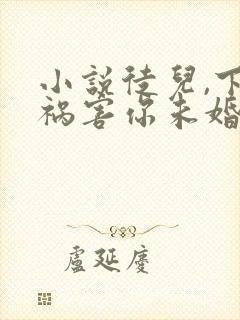 小説徒兒,下
祸害你未婚
盧延慶